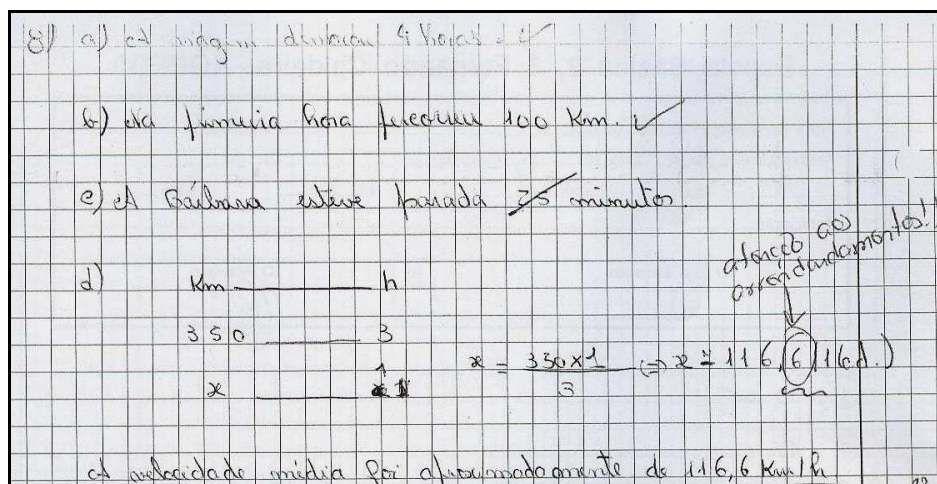 8) a) A viagem demorou 4 horas. ✓
b) Na primeira hora percorreu 100 Km. ✓
c) A Bárbara esteve parada 35 minutos.
atenção aos
arredondamentos!!
d) Km ——— h
350 ——— 3
x ——— 1
x = 350×1 / 3 (=) x ≃ 116,6 (1 c.d.)
A velocidade média foi aproximadamente de 116,6 Km/h